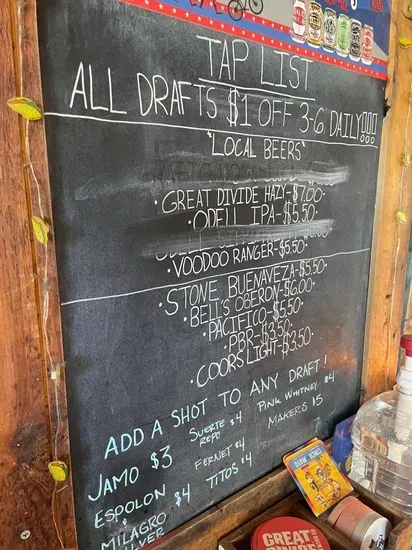 TAP LIST
ALL DRAFTS $1 OFF 3-6 DAILY!!!
"LOCAL BEERS"
· GREAT DIVIDE HAZY-$7.00
· ODELL IPA-$5.50·
· VOODOO RANGER-$5.50·
· STONE BUENAVEZA-$5.50·
· BELL'S OBERON-$6.00
· PACIFICO-$5.50·
· PBR-$3.50·
· COORS LIGHT-$3.50·
ADD A SHOT TO ANY DRAFT!
JAMO $3
ESPOLON $4
+
MILAGRO
SILVER
SUERTE
REPO $4
FERNET $4
TITOS $4
PINK WHITNEY $4
MAKERS $5
GREAT